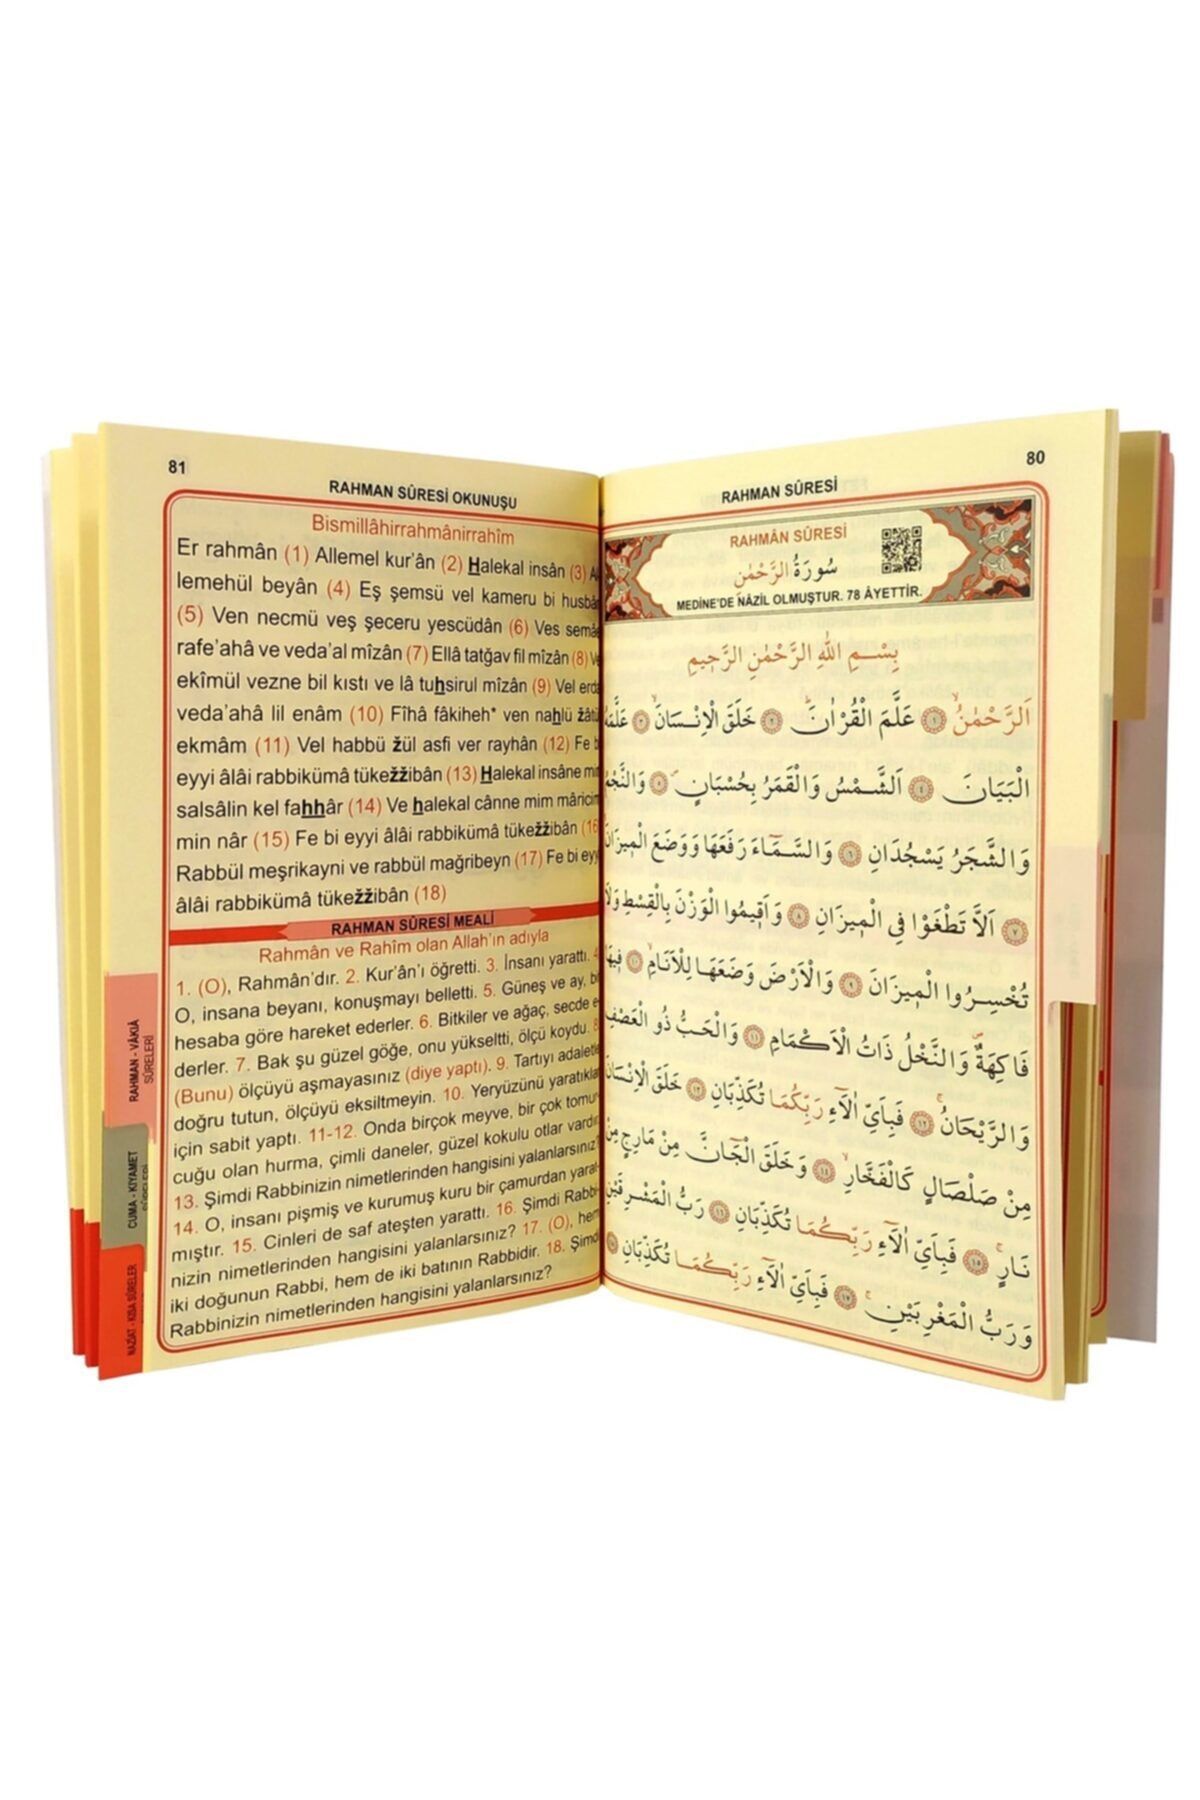 81
RAHMAN SÛRESİ OKUNUŞU
Bismillâhirrahmânirrahîm
Er rahmân (1) Allemel kur'ân (2) Halekal insân (3)
lemehül beyân (4) Eş şemsü vel kameru bi husbân
(5) Ven necmü veş şeceru yescüdân (6) Ves semâe
rafe'ahâ ve veda'al mîzân (7) Ellâ tatğav fil mîzân (8)
ekîmül vezne bil kıstı ve lâ tuhsirul mîzân (9) Vel erda
veda'ahâ lil enâm (10) Fîhâ fâkiheh* ven nahlü žâtü
ekmâm (11) Vel habbü žül asfi ver rayhân (12) Fe
eyyi âlâi rabbikümâ tükežžibân (13) Halekal insâne min
salsâlin kel fahhâr (14) Ve halekal cânne mim mâricim
min nâr (15) Fe bi eyyi âlâi rabbikümâ tükežžibân (16
Rabbül meşrikayni ve rabbül mağribeyn (17) Fe bi eyy
âlâi rabbikümâ tükežžibân (18)
RAHMAN SÛRESİ MEALİ
Rahmân ve Rahîm olan Allah'ın adıyla
1. (O), Rahmân'dır. 2. Kur'ân'ı öğretti. 3. İnsanı yarattı.
O, insana beyanı, konuşmayı belletti. 5. Güneş ve ay, bir
hesaba göre hareket ederler. 6. Bitkiler ve ağaç, secde e-
derler. 7. Bak şu güzel göğe, onu yükseltti, ölçü koydu. 8
(Bunu) ölçüyü aşmayasınız (diye yaptı). 9. Tartıyı adaletle
doğru tutun, ölçüyü eksiltmeyin. 10. Yeryüzünü yaratıklar
için sabit yaptı. 11-12. Onda birçok meyve, bir çok tomur-
cuğu olan hurma, çimli daneler, güzel kokulu otlar vardır.
13. Şimdi Rabbinizin nimetlerinden hangisini yalanlarsınız?
14. O, insanı pişmiş ve kurumuş kuru bir çamurdan yarat-
mıştır. 15. Cinleri de saf ateşten yarattı. 16. Şimdi Rabbi-
nizin nimetlerinden hangisini yalanlarsınız? 17. (O), hem
iki doğunun Rabbi, hem de iki batının Rabbidir. 18. Şimdi
Rabbinizin nimetlerinden hangisini yalanlarsınız?
RAHMAN - VÂKIÂ
SÛRELERİ
CUMA - KIYAMET
NAZİAT - KISA SÛRELER
80
RAHMAN SÛRESİ
RAHMÂN SÛRESİ
سُورَةُ الرَّحْمٰنِ
MEDİNE'DE NÂZİL OLMUŞTUR. 78 ÂYETTİR.
بِسْمِ اللّٰهِ الرَّحْمٰنِ الرَّحِيمِ
اَلرَّحْمٰنُۙ ﴿١﴾ عَلَّمَ الْقُرْاٰنَۜ ﴿٢﴾ خَلَقَ الْاِنْسَانَۙ ﴿٣﴾ عَلَّمَهُ
الْبَيَانَ ﴿٤﴾ اَلشَّمْسُ وَالْقَمَرُ بِحُسْبَانٍۖ ﴿٥﴾ وَالنَّجْمُ
وَالشَّجَرُ يَسْجُدَانِ ﴿٦﴾ وَالسَّمَٓاءَ رَفَعَهَا وَوَضَعَ الْمِيزَانَ
﴿٧﴾ اَلَّا تَطْغَوْا فِي الْمِيزَانِ ﴿٨﴾ وَاَقِيمُوا الْوَزْنَ بِالْقِسْطِ وَلَا
تُخْسِرُوا الْمِيزَانَ ﴿٩﴾ وَالْاَرْضَ وَضَعَهَا لِلْاَنَامِۙ ﴿١٠﴾ فِيهَا
فَاكِهَةٌۖ وَالنَّخْلُ ذَاتُ الْاَكْمَامِ ﴿١١﴾ وَالْحَبُّ ذُو الْعَصْفِ
وَالرَّيْحَانُۚ ﴿١٢﴾ فَبِاَيِّ اٰلَٓاءِ رَبِّكُمَا تُكَذِّبَانِ ﴿١٣﴾ خَلَقَ الْاِنْسَانَ
مِنْ صَلْصَالٍ كَالْفَخَّارِۙ ﴿١٤﴾ وَخَلَقَ الْجَٓانَّ مِنْ مَارِجٍ مِنْ
نَارٍۚ ﴿١٥﴾ فَبِاَيِّ اٰلَٓاءِ رَبِّكُمَا تُكَذِّبَانِ ﴿١٦﴾ رَبُّ الْمَشْرِقَيْنِ
وَرَبُّ الْمَغْرِبَيْنِۚ ﴿١٧﴾ فَبِاَيِّ اٰلَٓاءِ رَبِّكُمَا تُكَذِّبَانِ ﴿١٨﴾